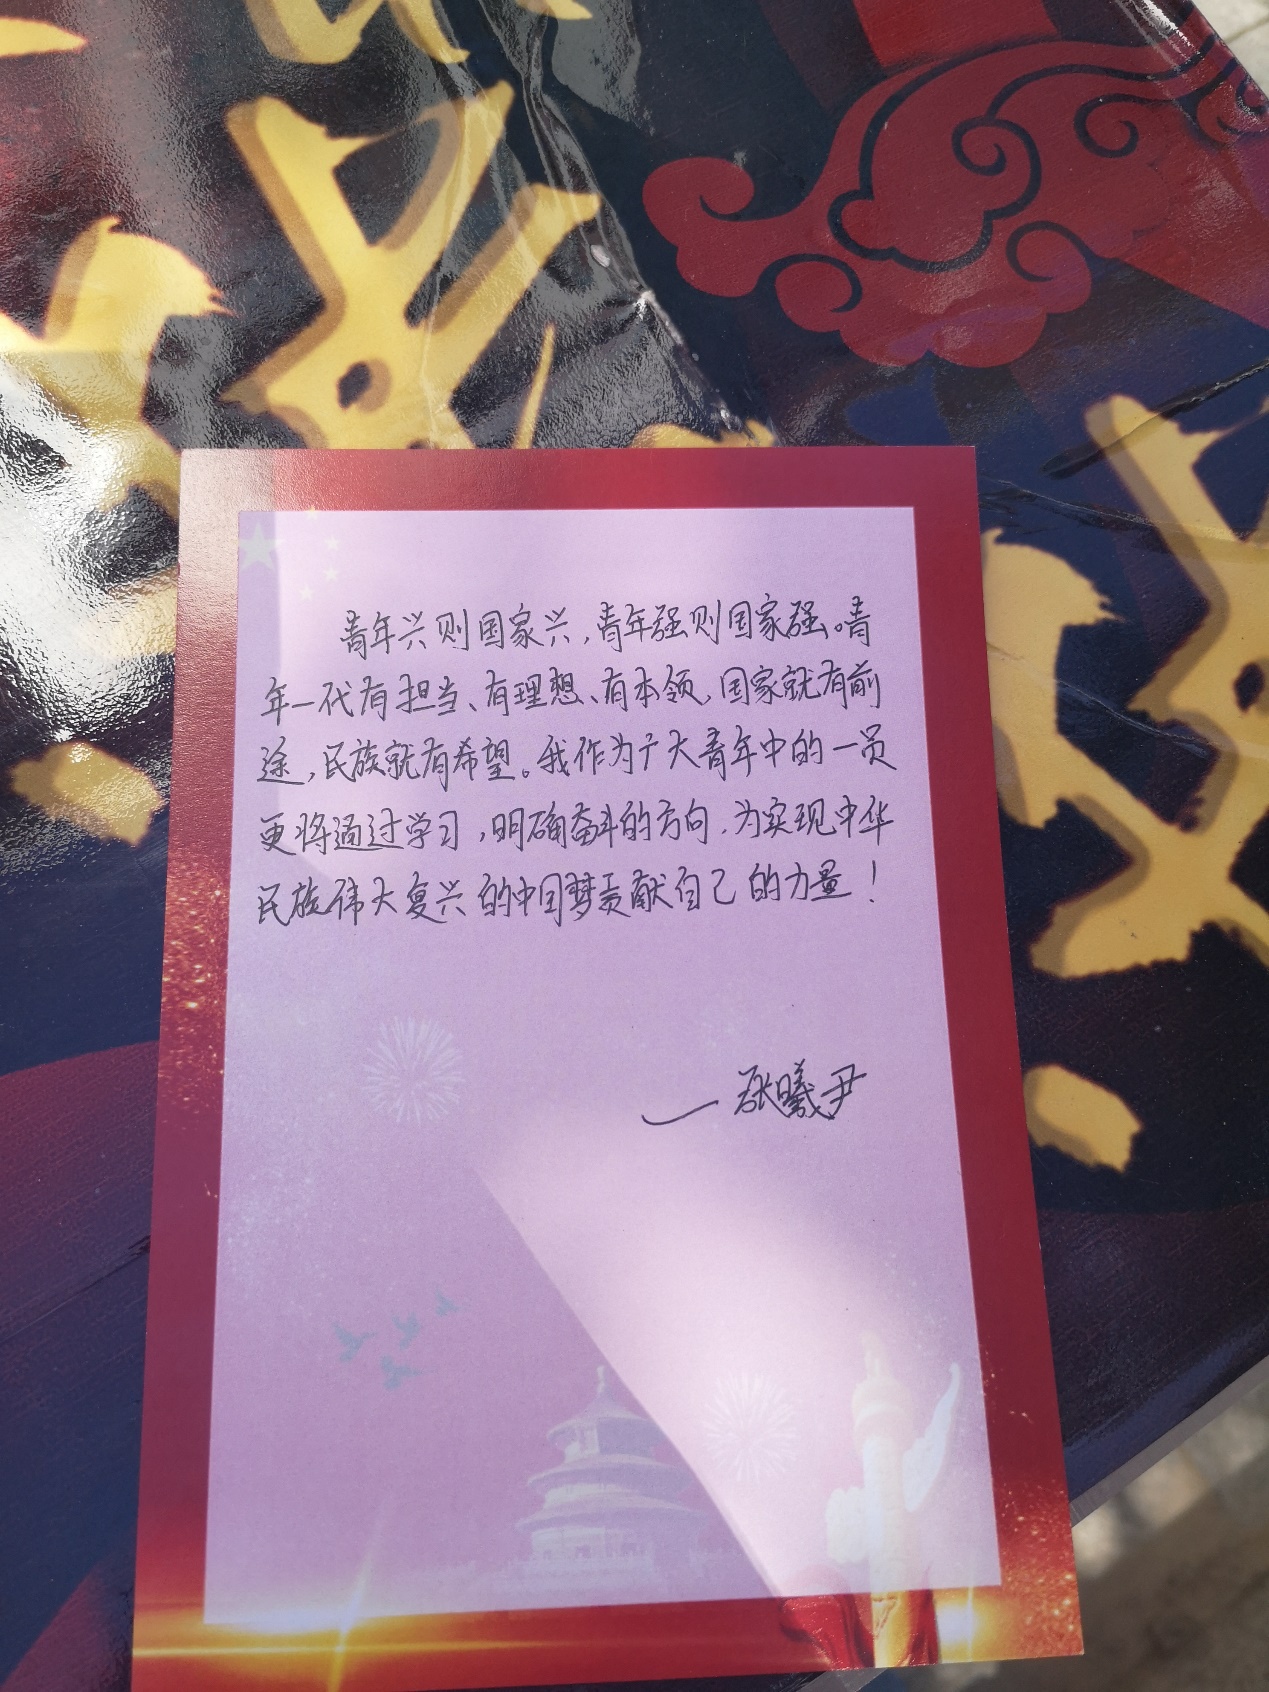 青年兴则国家兴,青年强则国家强。青
年一代有担当、有理想、有本领,国家就有前
途,民族就有希望。我作为广大青年中的一员
更将通过学习,明确奋斗的方向,为实现中华
民族伟大复兴的中国梦贡献自己的力量!
—张曦尹